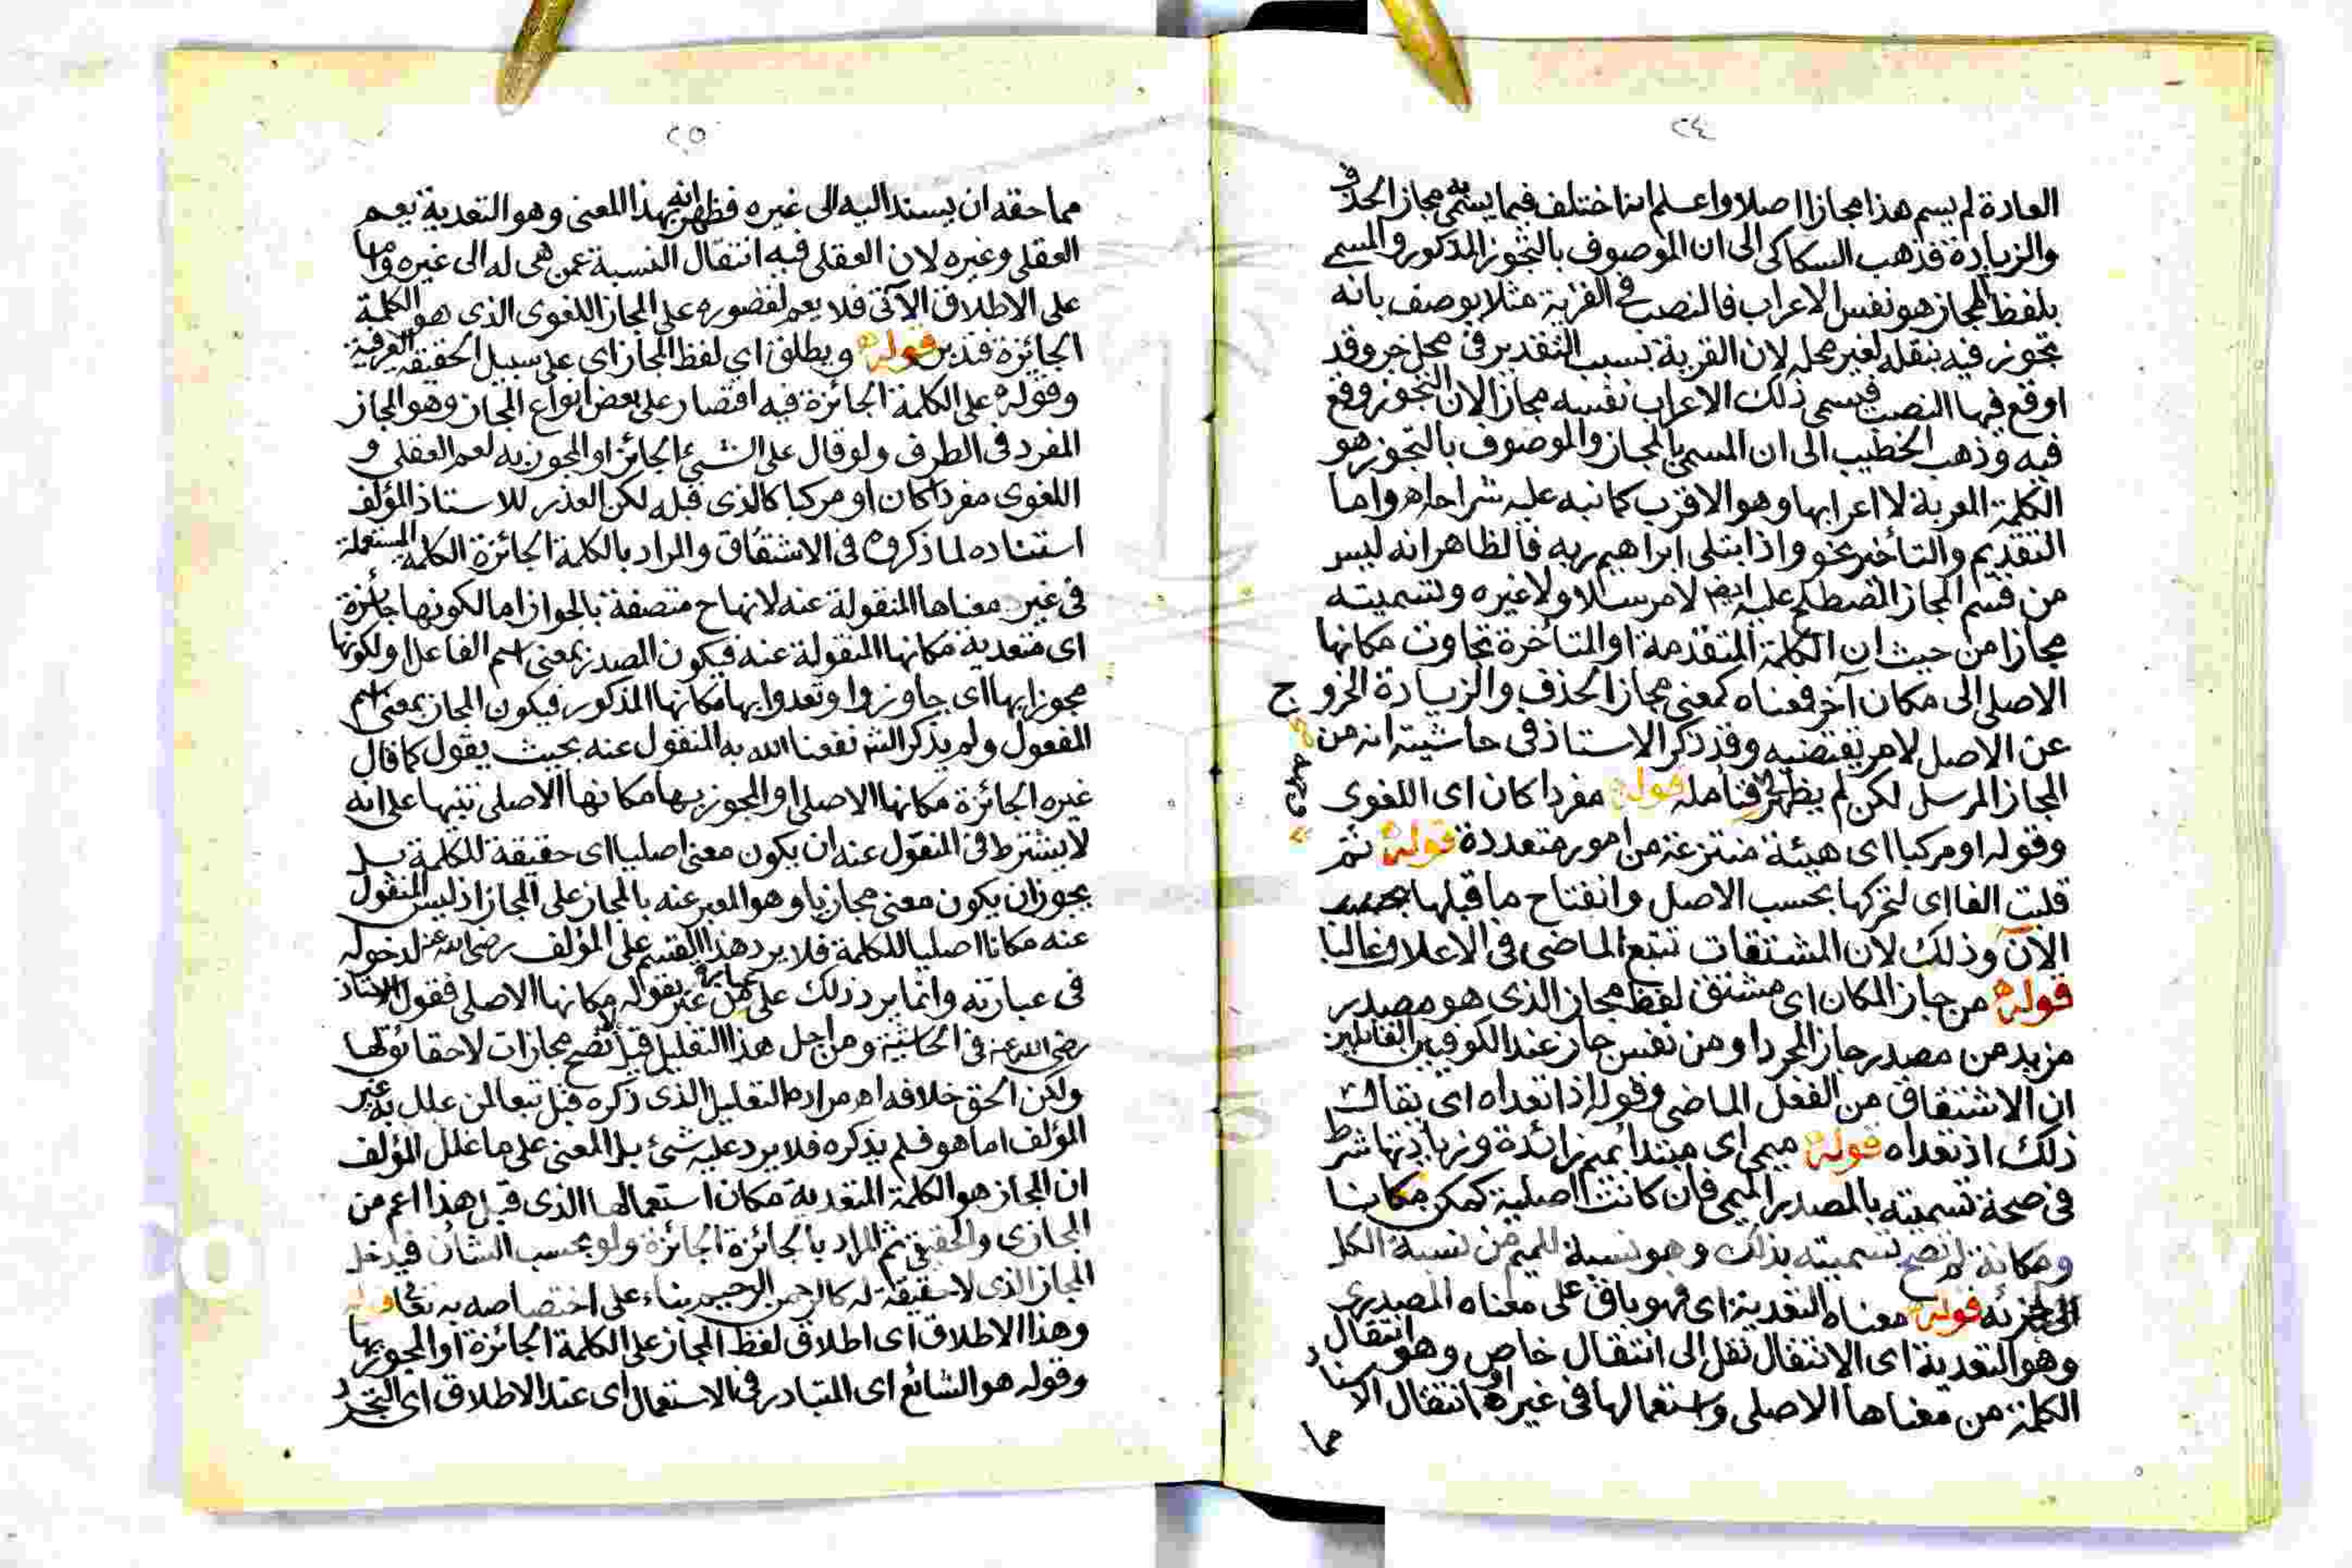 ٢٤
العادة لم يسم هذا مجازا اصلا واعلم انه اختلف فيما يسمى به مجاز الحذف
والزيادة فذهب السكاكى الى ان الموصوف بالتجوز المذكور والمسمى
بلفظ المجاز هو نفس الاعراب فالنصب فى القرية مثلا يوصف بانه
تجوز فيه بنقله لغير محله لان القرية بسبب التقدير فى محل جر وقد
اوقع فيها النصب فيسمى ذلك الاعراب نفسه مجازا لان التجوز وقع
فيه وذهب الخطيب الى ان المسمى بالمجاز والموصوف بالتجوز هو
الكلمة المعربة لا اعرابها وهو الاقرب كما نبه عليه شراحه اه واما
التقديم والتأخير نحو واذا ابتلى ابراهيم ربه فالظاهر انه ليس
من قسم المجاز المصطلح عليه ايضا لا مرسلا ولا غيره وتسميته
مجازا من حيث ان الكلمة المتقدمة او المتأخرة تجاوت مكانها
الاصلى الى مكان آخر فمعناه كمعنى مجاز الحذف والزيادة الخروج
عن الاصل لامر يقتضيه وقد ذكر الاستاذ فى حاشيته انه من
المجاز المرسل لكن لم يظهر فتأمله قوله مفردا كان اى اللغوى
وقوله او مركبا اى هيئة منتزعة من امور متعددة قوله ثم
قلبت الفا اى لتحركها بحسب الاصل وانفتاح ما قبلها بحسب
الآن وذلك لان المشتقات تتبع الماضى فى الاعلال غالبا
قوله من جاز المكان اى مشتق لفظ مجاز الذى هو مصدر
مزيد من مصدر جاز المجرد او من نفس جاز عند الكوفيين القائلين
ان الاشتقاق من الفعل الماضى وقوله اذا تعداه اى يقال
ذلك اذ تعداه قوله ميمى اى مبتدا بميم زائدة وزيادتها شرط
فى صحة تسميته بالمصدر الميمى فان كانت اصلية كمكن مكانا
ومكانة لم تصح تسميته بذلك وهو نسبة للميم من نسبة الكل
الى جزئه قوله معناه التعدية اى فهو باق على معناه المصدرى
وهو التعدية اى الانتقال نقل الى انتقال خاص وهو انتقال
الكلمة من معناها الاصلى واستعمالها فى غيره او انتقال الاسناد
مما
٢٥
مما حقه ان يسند اليه الى غيره فظهر انه بهذا المعنى وهو التعدية يعم
العقلى وغيره لان العقلى فيه انتقال النسبة عمن هى له الى غيره واما
على الاطلاق الآتى فلا يعم لقصوره على المجاز اللغوى الذى هو الكلمة
الجائزة فتدبر قوله ويطلق اي لفظ المجاز اى على سبيل الحقيقة العرفية
وقوله على الكلمة الجائزة فيه اقتصار على بعض انواع المجاز وهو المجاز
المفرد فى الطرف ولو قال على الشئ الجائز او المجوز به لعم العقلى و
اللغوى مفردا كان او مركبا كالذى قبله لكن العذر للاستاذ المؤلف
استناده لما ذكروه فى الاشتقاق والمراد بالكلمة الجائزة الكلمة المستعملة
فى غير معناها المنقولة عنه لانها ح متصفة بالجواز اما لكونها جائزة
اى متعدية مكانها المنقولة عنه فيكون المصدر بمعنى اسم الفاعل او لكونها
مجوزا بها اى جاوزوا وتعدوا بها مكانها المذكور فيكون المجاز بمعنى اسم
المفعول ولم يذكر الشه نفعنا الله به المنقول عنه بحيث يقول كما قال
غيره الجائزة مكانها الاصلى او المجوز بها مكانها الاصلى تنبيها على انه
لا يشترط فى المنقول عنه ان يكون معنى اصليا اى حقيقة للكلمة بل
يجوز ان يكون معنى مجازيا وهو المعبر عنه بالمجاز على المجاز اذ ليس المنقول
عنه مكانا اصليا للكلمة فلا يرد هذا القسم على المؤلف رضى الله عنه لدخوله
فى عبارته وانما يرد ذلك على من عبر بقوله مكانها الاصلى فقول الاستاذ
رضى الله عنه فى الحاشية ومن اجل هذا التعليل قيل لا تصح مجازات لا حقائق لها
ولكن الحق خلافه اه مراده التعليل الذى ذكره قبل تبعا لمن علل به غير
المؤلف اما هو فلم يذكره فلا يرد عليه شئ بل المعنى على ما علل المؤلف
ان المجاز هو الكلمة المتعدية مكان استعمالها الذى قبل هذا اعم من
المجازى والحقيقى ثم المراد بالجائزة الجائزة ولو بحسب الشأن فيدخل
المجاز الذى لا حقيقة له كالرحمن الرحيم بناء على اختصاصه به تعالى قوله
وهذا الاطلاق اى اطلاق لفظ المجاز على الكلمة الجائزة او المجوز بها
وقوله هو الشائع اى المتبادر فى الاستعمال اى عند الاطلاق اى التجرد